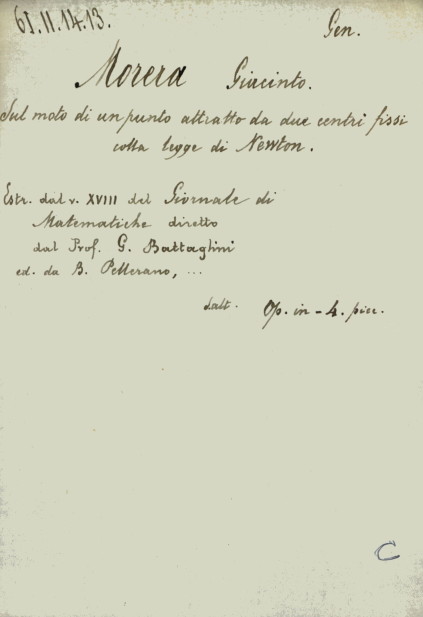 61.II.14.13.
Gen.
Morera Giacinto.
Sul moto di un punto attratto da due centri fissi
colla legge di Newton.
Estr. dal v. XVIII del Giornale di
Matematiche diretto
dal Prof. G. Battaglini
ed. da B. Pellerano, ...
dall'. Op. in-4. picc.
C